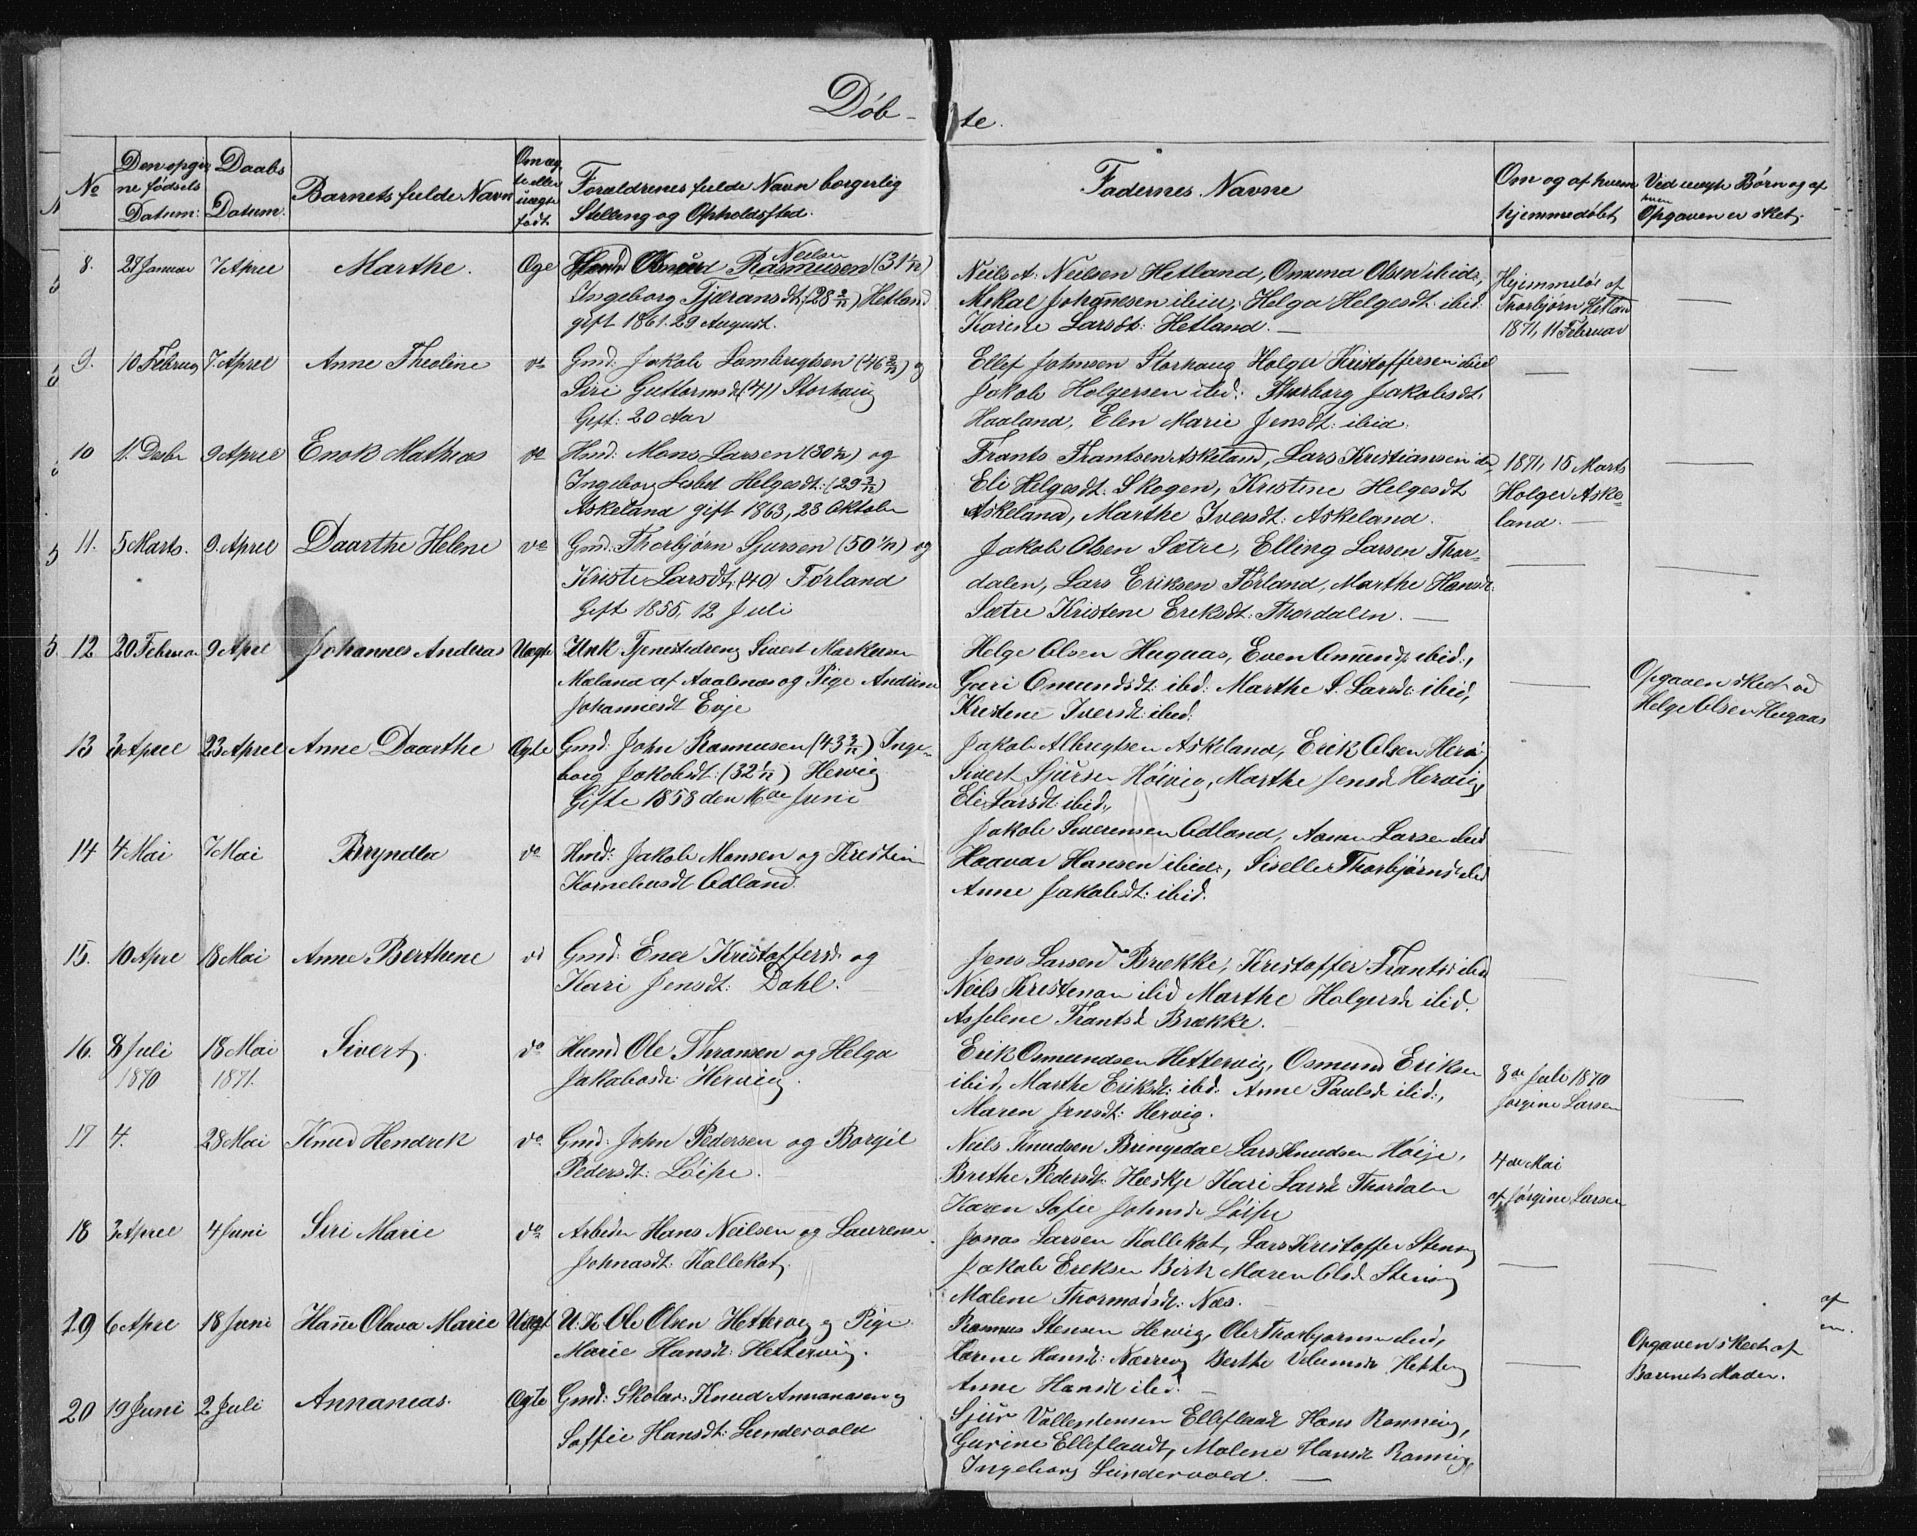 Døb- te.
No
Den opgivne fødsels Datum:
Daabs Datum.
Barnets fulde Navn
Om ægte eller uægte født.
Forældrenes fulde Navn borgerlig
Stilling og Opholdssted.
Fadernes Navne
Om og af hvem
hjemmedøbt
Ved uægte Børn og af
hvem
Opgaven er sket.
8. 28 Januar 7 April Marthe. Ægte
Neilsen
Rasmusen (31 1/12)
Ingeborg Tjæransdt. (28 3/12) Hetland
gift 1861. 29 August.
Neils A. Neilsen Hetland, Osmund Olsen ibid,
Mikal Johannesen ibid, Helga Helgesdt. ibid:
Karine Larsdt: Hetland. —
Hjemmedøbt af
Thorbjørn Hetland
1871, 11 Februar
—
9. 10 Februg 7 April Anne Theoline do
Gmd: Jakob Lambregtsen (46 3/12) og
Siri Guttormsd. (41) Storhaug
Gift: 20 Aar
Ellef Johnsen Storhaug Holger Kristoffersen ibid
Jakob Holgersen ibid: Thorborg Jakobsdt.
Haaland, Elen Marie Jensdt: ibid.
— —
10 11. Desbr 9 April Enok Mathias do
Hmd: Mons Larsen (30 1/12) og
Ingeborg Lisbet Helgesdt: (29 3/12)
Askeland gift 1863, 23 Oktober
Frants Frantsen Askeland, Lars Kristiansen ibd,
Eli Helgesdt. Skogen, Kristine Helgesdt
Askeland, Marthe Iversdt: Askeland.
1871, 15 Marts
Holger Aske-
land. —
—
11. 5 Marts. 9 April Daarthe Helene do
Gmd: Thorbjørn Sjursen (50 1/12) og
Kriste Larsdt. (40) Førland
Gift 1855, 12 Juli
Jakob Olsen Sætre, Elling Larsen Thor-
dalen, Lars Eriksen Førland, Marthe Hansdt.
Sætre Kristene Eriksdt: Thordalen. —
— —
12 20 Februa 9 April Johannes Anderas Uægte
Unk Tjenestedreng Sivert Markusen
Mæland af Avalsnes og Pige Andrine
Johannesdt Evje
Helge Olsen Hugaas, Even Omundsen ibid:,
Guri Omundsdt: ibd: Marthe S. Larsdt ibid,
Kristene Iversdt: ibid.
—
Opgaven skeet ved
Helge Olsen Hugaas
13 3 April 23 April Anne Daarthe Ægte
Gmd: John Rasmusen (43 3/12) Inge-
borg Jakobsdt: (32 1/12) Hervig
Gifte 1858 den 16de Juni
Jakob Albregtsen Askeland, Erik Olsen Hervig
Sivert Sjursen Høivig, Marthe Jensdt Hervig,
Eli Larsdt: ibid:,
14 4 Mai 7 Mai Bryndla do
Hmd: Jakob Monsen og Kristin
Korneliusdt Ødland.
Jakob Severensen Ødland, Aamen Larsen ibid
Haavar Hansen ibid:, Siselle Thorbjørnsdt ibid
Anne Jakobsdt: ibid.
— —
15. 10 Apre 18 Mai Anne Berthine do
Gmd: Ener Kristoffersen og
Kari Jensdt: Dahl. —
Jens Larsen Brække, Kristoffer Frantsen ibid
Neils Kristenan ibid Marthe Holgersdt ibid.
Asselene Frantsdt Brække. —
— —
16. 8 Juli
1870 18 Mai
1871. Sivert. do
Huusmd Ole Thransen og Helga
Jakobsdt: Hervig.
Erik Osmundsen Hettervig, Osmund Eriksen
ibid, Marthe Eriksdt: ibd: Anne Paulsdt ibid:,
Maren Jensdt: Hervig.
8de Juli 1870
Jørgine Larsen
—
17 4. 28 Mai Knud Hendrik do
Gmd: John Pedersen og Borgil
Pedersdt: Løipe.
Neils Knudsen Bringedal Lars Knudsen Høije,
Brithe Pedersdt: Hæskje Kari Larsdt Thordalen
Karen Sofie Johnsdt Løipe
4de Mai
af Jørgine Larsen
18 3 April 4 Juni Siri Marie do
Arbeider Hans Neilsen og Laurense
Johnasdt: Kallekot.
Jonas Larsen Kallekot, Lars Kristoffer Stensvig
Jakob Eriksen Birk Maren Olsd Stensvig
Malene Thormodsdt: Næs. —
— —
19 6 Apre 18 Juni Hanne Olava Marie Uægt
U. K. Ole Olsen Hettervig og Pige
Marie Hansdt: Hettervig.
Rasmus Stensen Hervig, Ole Thorbjørnsen ibid,
Karine Hansdt: Nærvig Berthe Hettervig
Anne Hansdt ibid. —
—
Opgaven skeet af
Barnets Moder.
20 19 Juni 2 Juli Annanias. Ægte
Gmd: Skolær: Knud Annaniasen og
Soffie Hansdt: Sundervold
Sjur Vallentinsen Elleflaadt Hans Rønnevig,
Gurine Elleflaadt, Malene Hansdt Rønnevig
Ingeborg Sundervold. —
af